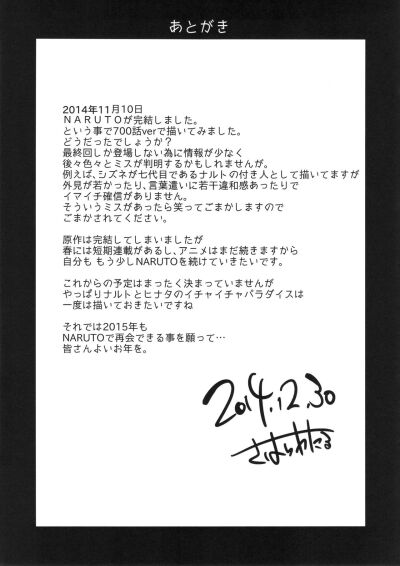 あとがき
2014年11月10日
ＮＡＲＵＴＯが完結しました。
という事で700話verで描いてみました。
どうだったでしょうか？
最終回しか登場しない為に情報が少なく
後々色々とミスが判明するかもしれませんが。
例えば、シズネが七代目であるナルトの付き人として描いてますが
外見が若かったり、言葉遣いに若干違和感あったりで
イマイチ確信がありません。
そういうミスがあったら笑ってごまかしますので
ごまかされてください。
原作は完結してしまいましたが
春には短期連載があるし、アニメはまだ続きますから
自分も もう少しNARUTOを続けていきたいです。
これからの予定はまったく決まっていませんが
やっぱりナルトとヒナタのイチャイチャパラダイスは
一度は描いておきたいですね
それでは2015年も
NARUTOで再会できる事を願って…
皆さんよいお年を。
2014.12.30
さはらわたる